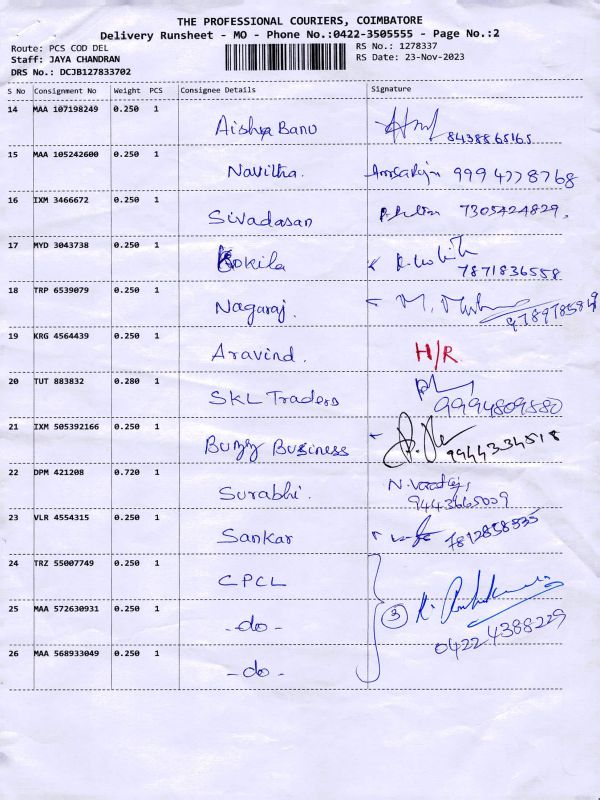 THE PROFESSIONAL COURIERS, COIMBATORE
Delivery Runsheet - MO - Phone No.:0422-3505555 - Page No.:2
Route: PCS COD DEL RS No.: 1278337
Staff: JAYA CHANDRAN RS Date: 23-Nov-2023
DRS No.: DCJB127833702
S No Consignment No Weight PCS Consignee Details Signature
14 MAA 107198249 0.250 1 Aishya Banu 8438865165
15 MAA 105242600 0.250 1 Navitha. 9994778768
16 IXM 3466672 0.250 1 Sivadasan 7305424829.
17 MYD 3043738 0.250 1 Kokila 7871836558
18 TRP 6539079 0.250 1 Nagaraj.
19 KRG 4564439 0.250 1 Aravind. H/R
20 TUT 883832 0.280 1 SKL Traders 9994809880
21 IXM 505392166 0.250 1 Buzzy Business 9944334518
22 DPM 421208 0.720 1 Surabhi. 9443665009
23 VLR 4554315 0.250 1 Sankar 7812858535
24 TRZ 55007749 0.250 1 CPCL
25 MAA 572630931 0.250 1 -do- 3 04224388229
26 MAA 568933049 0.250 1 -do-